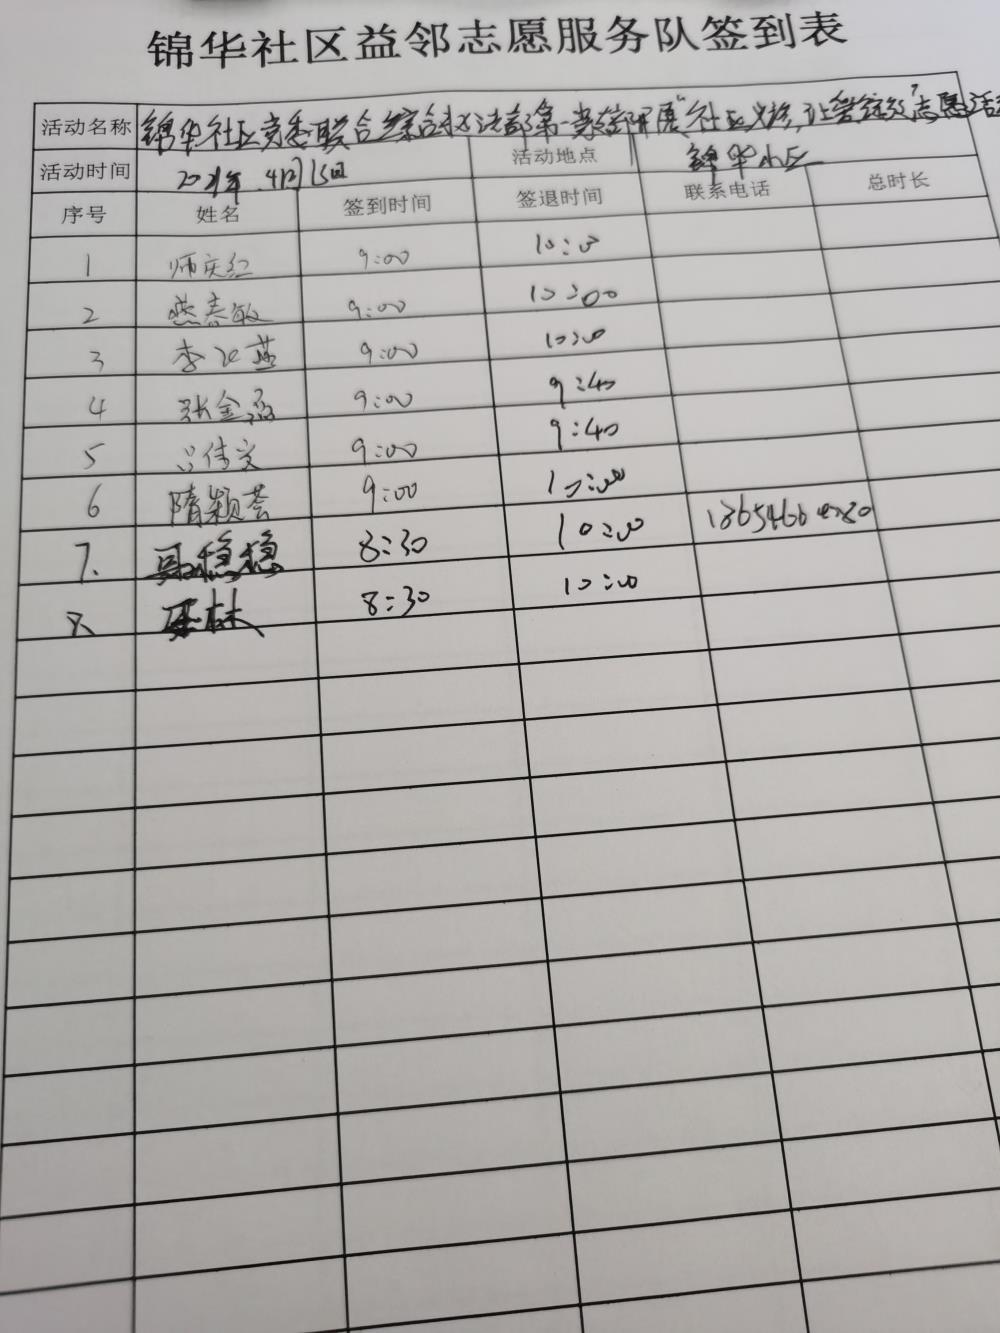 锦华社区益邻志愿服务队签到表
活动名称 锦华社区党委联合综合执法部第一 开展"社区义诊,让 "志愿活动
活动时间 2021年.4月15日 活动地点 锦华小区
序号 姓名 签到时间 签退时间 联系电话 总时长
1 师庆红 9:00 10:0
2 燕春敏 9:00 10:00
3 李 燕 9:00 10:00
4 张金 9:00 9:40
5 吕倩文 9:00 9:40
6 隋颖荟 9:00 10:00
7. 稳稳 8:30 10:00
8. 林 8:30 10:00